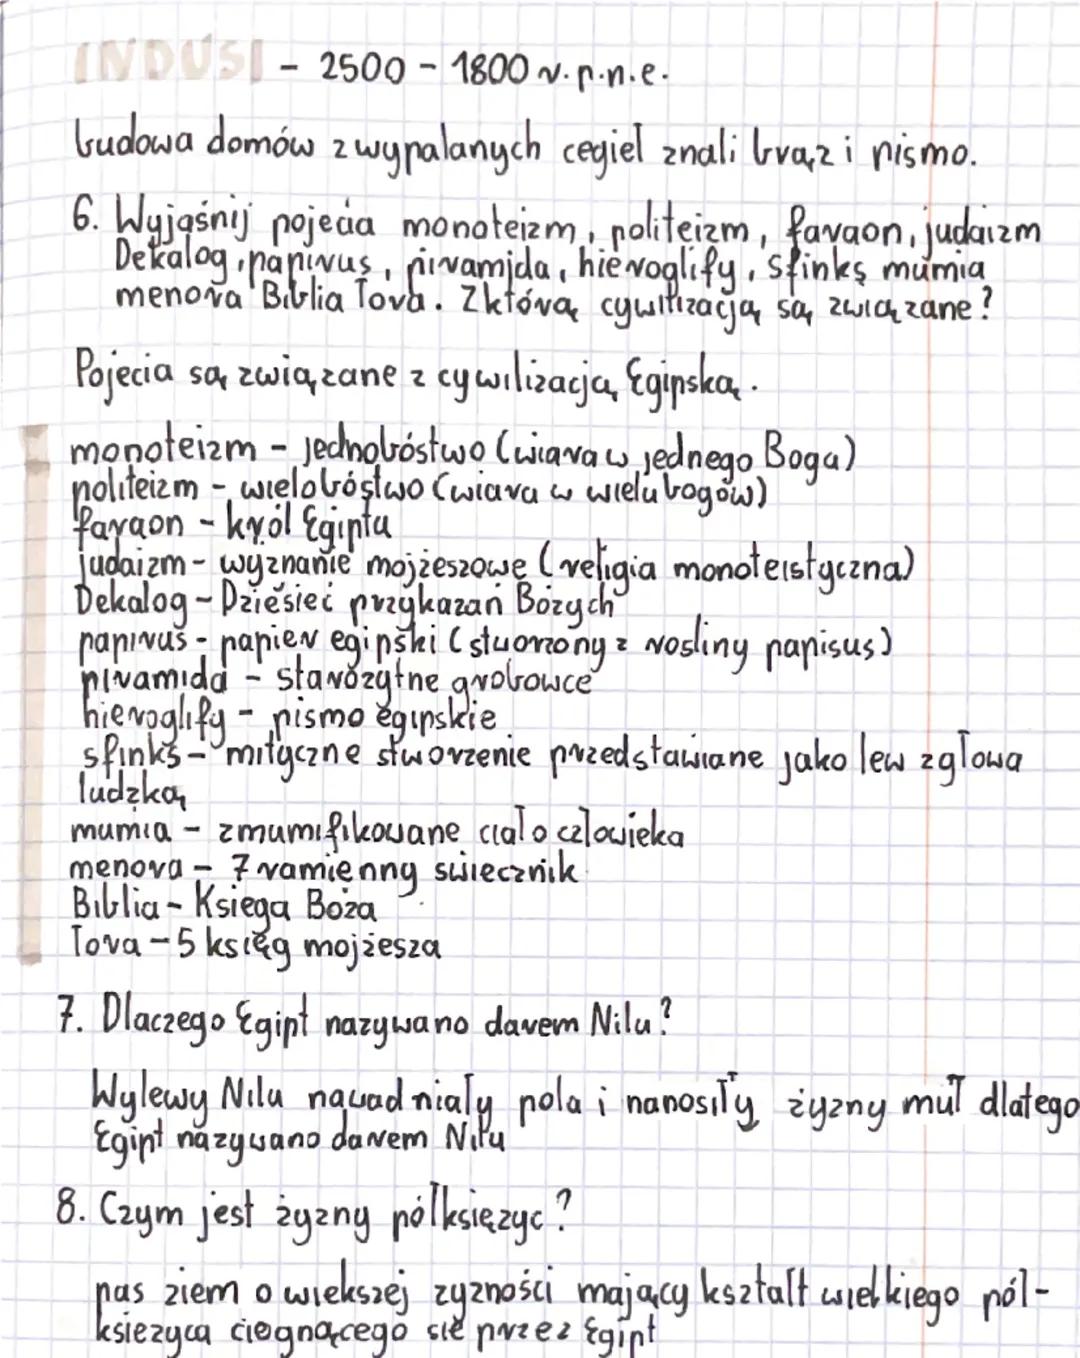 INDUSI - 2500 - 1800 r.p.n.e.
budowa domów z wypalanych cegieł znali brąz i pismo.
6. Wyjaśnij pojęcia monoteizm, politeizm, faraon, judaizm
Dekalog, papirus, piramida, hieroglify, sfinks mumia
menora Biblia Tora. Z którą cywilizacją są związane?
Pojecia są związane z cywilizacją Egipską.
monoteizm - jednobóstwo (wiara w jednego Boga)
politeizm - wielobóstwo (wiara w wielu bogów)
faraon - król Egiptu
judaizm - wyznanie mojżeszowe (religia monoteistyczna)
Dekalog - Dziesięć przykazań Bożych
papirus - papier egipski (stworzony z rosliny papisus)
piramida - starożytne grobowce
hieroglify - pismo egipskie
sfinks - mityczne stworzenie przedstawiane jako lew z głowa
ludzką
mumia - zmumifikowane ciało człowieka
menora - 7 ramienny świecznik
Biblia - Ksiega Boża
Tora - 5 księg mojżesza
7. Dlaczego Egipt nazywano darem Nilu?
Wylewy Nilu nawadniały pola i nanosiły żyzny muł dlatego
Egipt nazywano darem Nilu
8. Czym jest żyzny półksiężyc?
pas ziem o wiekszej zyzności mający kształt wielkiego pół-
ksiezyca ciognącego sie przez Egipt